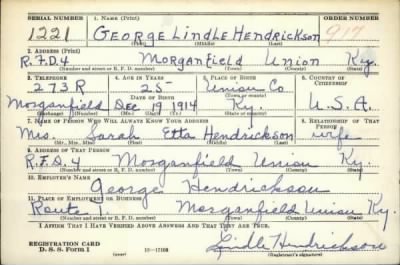 SERIAL NUMBER 1. NAME (Print) ORDER NUMBER
1221 GEORGE LINDLE HENDRICKSON 917
(First) (Middle) (Last)
2. ADDRESS (Print)
R.F.D.4 Morganfield Union Ky.
(Number and street or R. F. D. number) (Town) (County) (State)
3. TELEPHONE 4. AGE IN YEARS 5. PLACE OF BIRTH 6. COUNTRY OF CITIZENSHIP
273R 25 Union Co
DATE OF BIRTH
Morganfield Dec 19 1914 Ky. U.S.A.
(Exchange) (Number) (Mo.) (Day) (Yr.) (State or country)
7. NAME OF PERSON WHO WILL ALWAYS KNOW YOUR ADDRESS 8. RELATIONSHIP OF THAT PERSON
Mrs. Sarah Etta Hendrickson wife
(Mr., Mrs., Miss) (First) (Middle) (Last)
9. ADDRESS OF THAT PERSON
R.F.D.4 Morganfield Union Ky.
(Number and street or R. F. D. number) (Town) (County) (State)
10. EMPLOYER'S NAME
George Hendrickson
11. PLACE OF EMPLOYMENT OR BUSINESS
Route 1. Morganfield Union Ky.
(Number and street or R. F. D. number) (Town) (County) (State)
I AFFIRM THAT I HAVE VERIFIED ABOVE ANSWERS AND THAT THEY ARE TRUE.
REGISTRATION CARD
D. S. S. Form 1 (over) Lindle Hendrickson
(Registrant's signature)